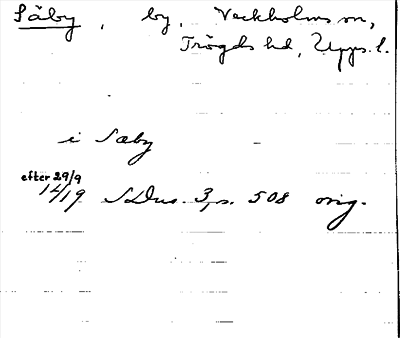 Säby, by, Veckholms sn,
Trögds hd, Upps. l.
i Sæby
efter 29/9
1419 SDns. 3, s. 508 orig.